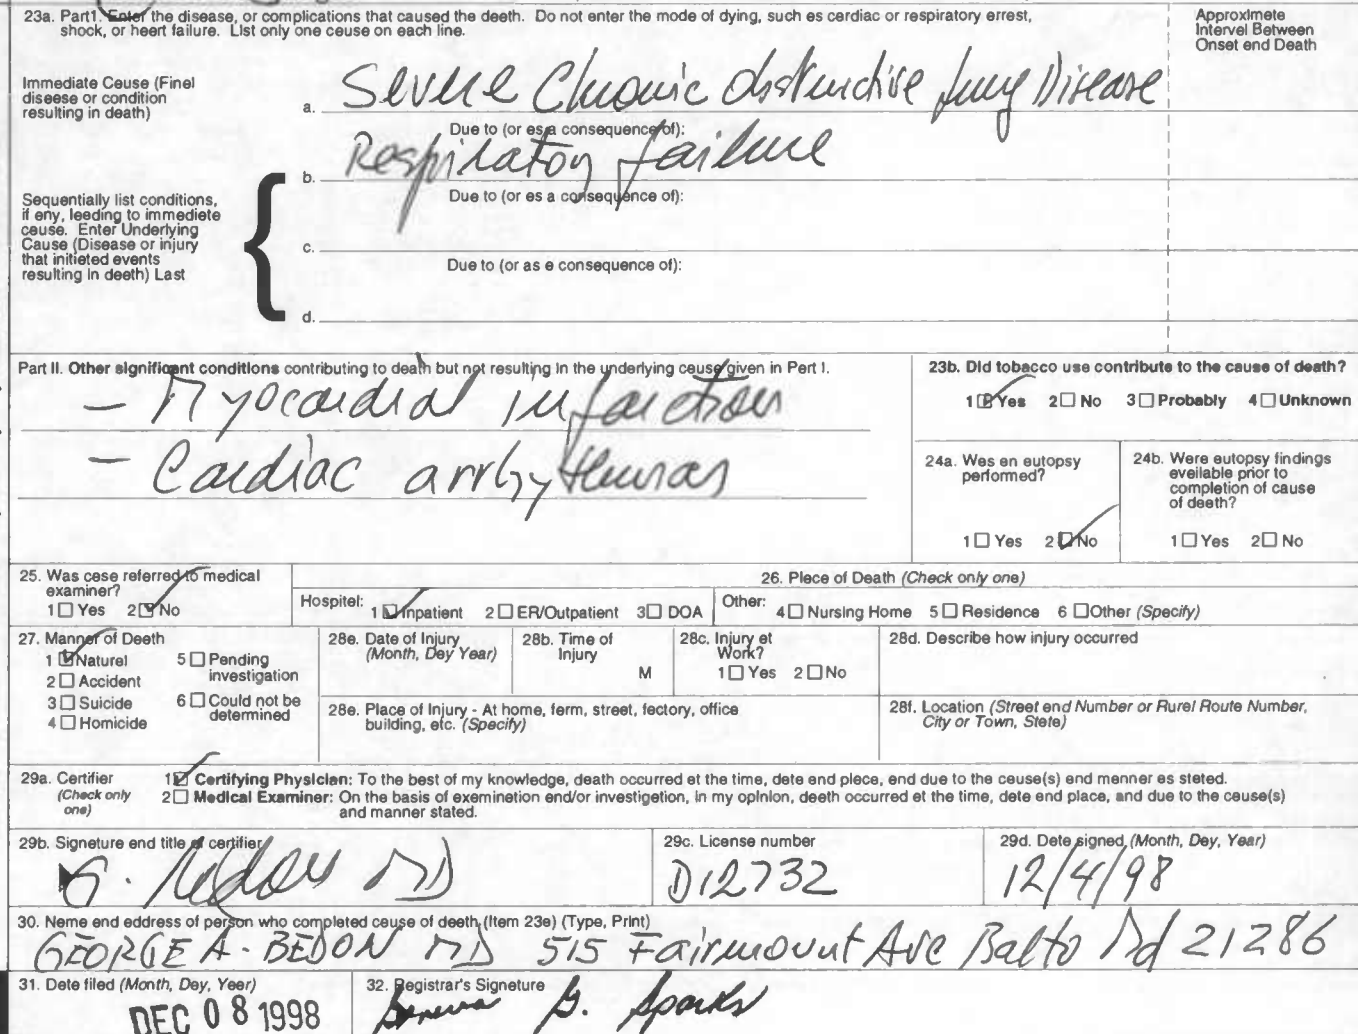 23a. Part1. Enter the disease, or complications that caused the deeth. Do not enter the mode of dying, such es cerdiac or respiratory errest,
shock, or heert failure. List only one ceuse on each line.
Approximete
Intervel Between
Onset end Death
Immediate Ceuse (Finel
diseese or condition
resulting in death)
a. Severe Chronic obstructive lung Disease
Due to (or es a consequence of):
b. Respiratory failure
Due to (or es a consequence of):
Sequentially list conditions,
if eny, leading to immediete
ceuse. Enter Underlying
Cause (Disease or injury
that initieted events
resulting in deeth) Last
c.
Due to (or as e consequence of):
d.
Part II. Other significant conditions contributing to death but not resulting in the underlying ceuse given in Part I.
– Myocardial infarction
– Cardiac arrhythmias
23b. Did tobacco use contribute to the cause of death?
1 Yes 2 No 3 Probably 4 Unknown
24a. Wes en eutopsy
performed?
1 Yes 2 No
24b. Were eutopsy findings
eveilable prior to
completion of cause
of deeth?
1 Yes 2 No
25. Was cese referred to medical
examiner?
1 Yes 2 No
26. Plece of Death (Check only one)
Hospitel: 1 Inpatient 2 ER/Outpatient 3 DOA Other: 4 Nursing Home 5 Residence 6 Other (Specify)
27. Manner of Deeth
1 Naturel 5 Pending
investigation
2 Accident
3 Suicide 6 Could not be
determined
4 Homicide
28e. Date of Injury
(Month, Dey Year)
28b. Time of
Injury
M
28c. Injury et
Work?
1 Yes 2 No
28d. Describe how injury occurred
28e. Place of Injury - At home, ferm, street, fectory, office
building, etc. (Specify)
28f. Location (Street end Number or Rurel Route Number,
City or Town, Stete)
29a. Certifier
(Check only
one)
1 Certifying Physician: To the best of my knowledge, death occurred et the time, dete end plece, end due to the ceuse(s) end menner es steted.
2 Medical Examiner: On the basis of exeminetion end/or investigetion, in my opinion, deeth occurred et the time, dete end place, and due to the ceuse(s)
and manner stated.
29b. Signeture end title of certifier
G. Bedon MD
29c. License number
D12732
29d. Dete signed (Month, Dey, Year)
12/4/98
30. Neme end eddress of person who completed ceuse of deeth (Item 23e) (Type, Print)
GEORGE A. BEDON MD 515 Fairmount Ave Balto Md 21286
31. Dete filed (Month, Dey, Yeer)
DEC 08 1998
32. Registrar's Signeture
Geneva G. Sparks